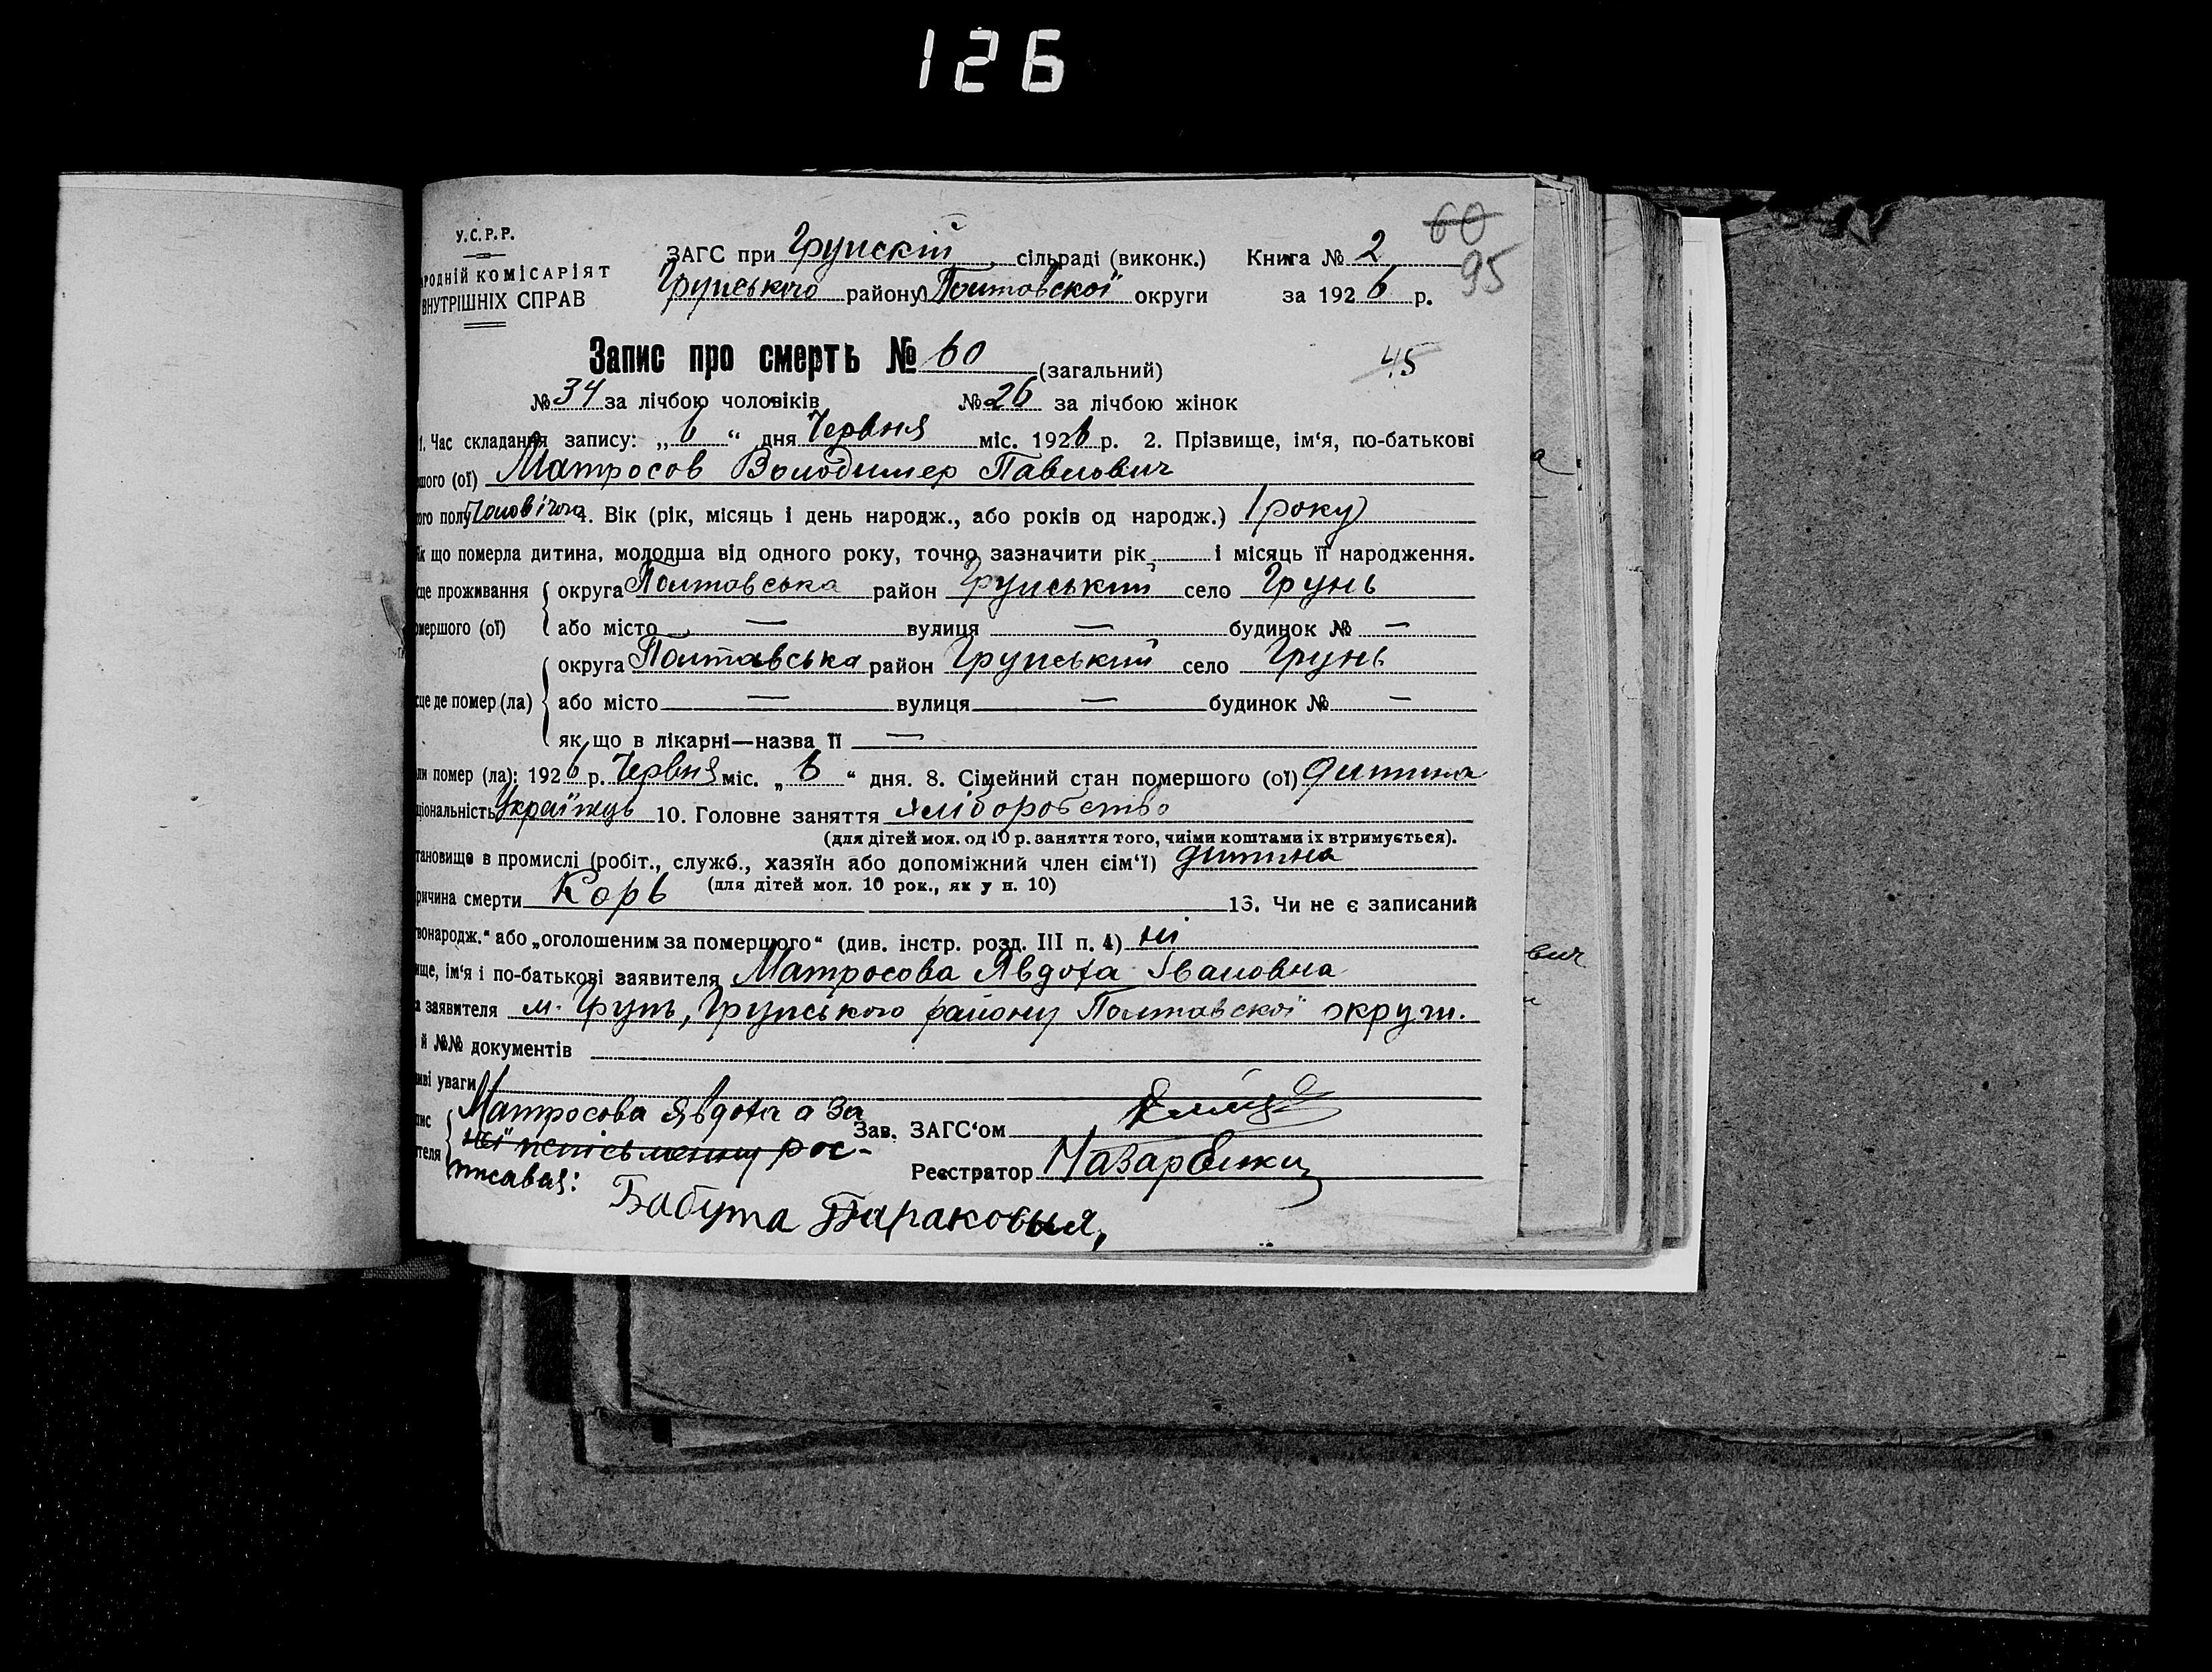 126
60
95
У.С.Р.Р.
РОДНІЙ КОМІСАРІЯТ
ВНУТРІШНІХ СПРАВ
ЗАГС при Грунскій сільраді (виконк.) Книга № 2
Грунського району Полтовскої округи за 1926 р.
Запис про смерть № 60 (загальний)
45
№ 34 за лічбою чоловіків № 26 за лічбою жінок
1. Час складання запису: „6“ дня Червня міс. 1926 р. 2. Прізвище, ім‘я, по-батькові
шого (ої) Матросов Володимер Павлович
ого полу Чоловічого 4. Вік (рік, місяць і день народж., або років од народж.) 1 року
як що померла дитина, молодша від одного року, точно зазначити рік і місяць її народження.
сце проживання округа Полтовська район Грунський село Грунь
омершого (ої) або місто — вулиця — будинок № —
округа Полтавська район Грунський село Грунь
сце де помер (ла) або місто — вулиця — будинок № —
як що в лікарні—назва її —
ли помер (ла): 1926 р. Червня міс. „6“ дня. 8. Сімейний стан помершого (ої) дитина
ціональність Українць 10. Головне заняття хліборобство
(для дітей мол. од 10 р. заняття того, чиїми коштами їх втримується).
тановище в промислі (робіт., служб., хазяїн або допоміжний член сім‘ї) дитина
(для дітей мол. 10 рок., як у п. 10)
ричина смерти Корь 13. Чи не є записаний
вонародж.“ або „оголошеним за помершого“ (див. інстр. розд. III п. 4) ні
ище, ім‘я і по-батькові заявителя Матросова Явдоха Івановна
а заявителя м. Грунь, Грунського району Полтавскої округи.
й №№ документів
иві уваги
Матросова Явдоха а за
пис
неї неписьменну рос-
Зав. ЗАГС‘ом
теля
писавя:
Реєстратор Назаренки
Бабута Параковья,
вич